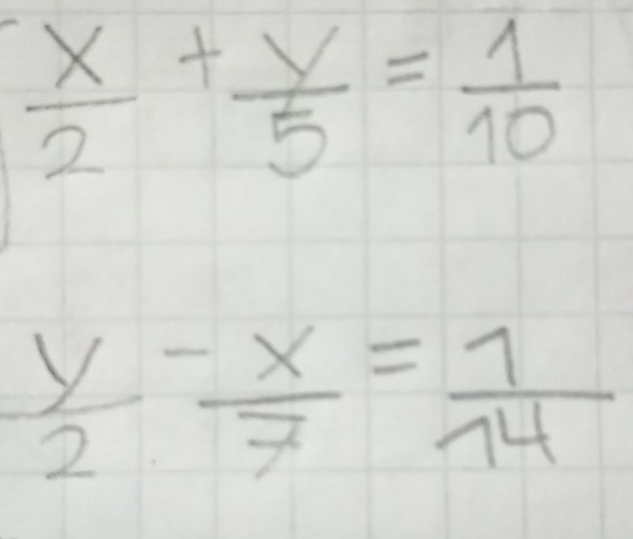 x/2 + y/5 = 1/10
y/2 - x/7 = 1/14